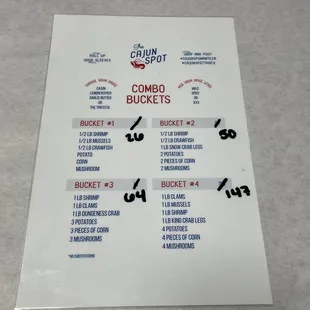 The
CAJUN
SPOT
ROLL UP
YOUR SLEEVES
SNAP AND POST
COMBO
BUCKETS
CAJUN
LEMON PEPPER
GARLIC BUTTER
OR
THE TRIFECTA
MILD
SPICY
OR
XXX
BUCKET #1
26
1/2 LB SHRIMP
1/2 LB MUSSELS
1/2 LB CRAWFISH
POTATO
CORN
MUSHROOM
BUCKET #2
50
1/2 LB SHRIMP
1/2 LB CRAWFISH
1 LB SNOW CRAB LEGS
2 POTATOES
2 PIECES OF CORN
2 MUSHROOMS
BUCKET #3
64
1 LB SHRIMP
1 LB CLAMS
1 LB DUNGENESS CRAB
3 POTATOES
3 PIECES OF CORN
3 MUSHROOMS
BUCKET #4
147
1 LB CLAMS
1 LB MUSSELS
1 LB SHRIMP
1 LB KING CRAB LEGS
4 POTATOES
4 PIECES OF CORN
4 MUSHROOMS
*NO SUBSTITUTIONS